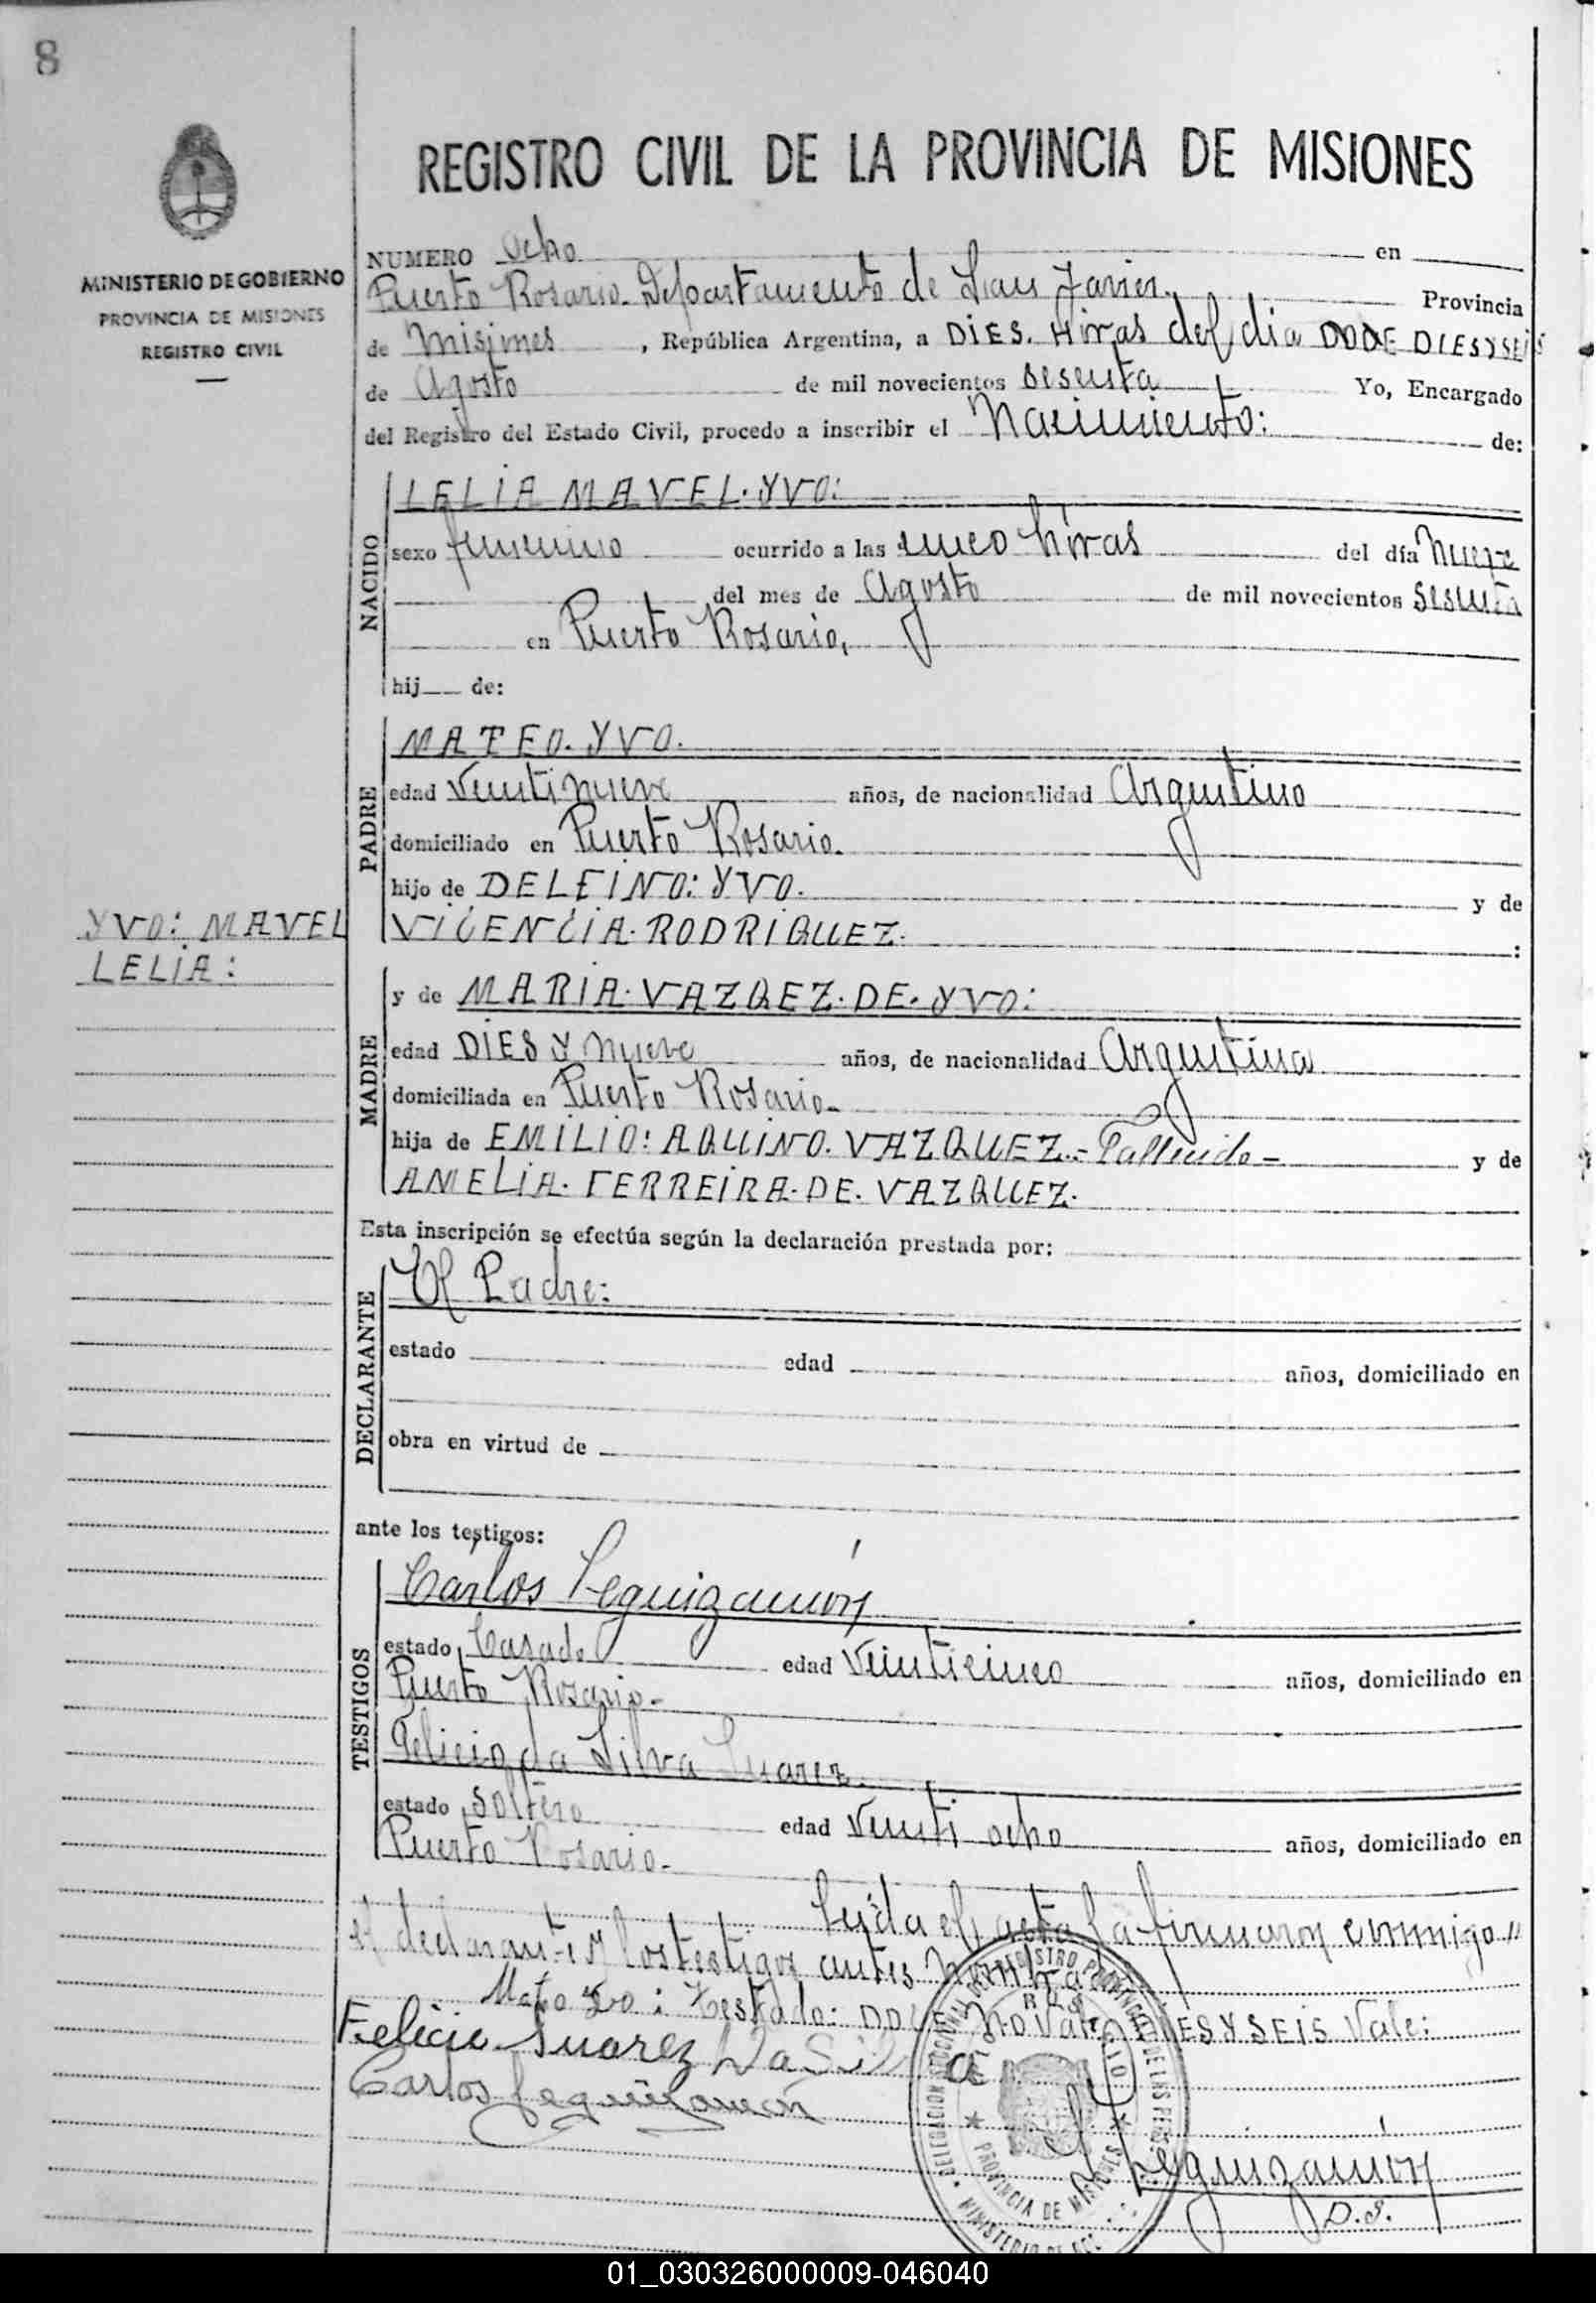 8
MINISTERIO DE GOBIERNO
PROVINCIA DE MISIONES
REGISTRO CIVIL
REGISTRO CIVIL DE LA PROVINCIA DE MISIONES
NUMERO Ocho en
Puerto Rosario. Departamento de San Javier. Provincia
de Misiones, República Argentina, a DIES. Horas del dia DOCE DIESYSEIS
de Agosto de mil novecientos sesenta Yo, Encargado
del Registro del Estado Civil, procedo a inscribir el Nacimiento: de:
NACIDO
LELIA MAVEL. YVO:
sexo femenino ocurrido a las cinco horas del día nueve
del mes de Agosto de mil novecientos sesenta
en Puerto Rosario,
hij de:
PADRE
MATEO. YVO.
edad Veintinueve años, de nacionalidad Argentino
domiciliado en Puerto Rosario.
hijo de DELFINO: YVO. y de
VICENCIA. RODRIQUEZ. :
YVO: MAVEL
LELIA:
MADRE
y de MARIA. VAZQEZ. DE. YVO:
edad DIES Y nueve años, de nacionalidad Argentina
domiciliada en Puerto Rosario.
hija de EMILIO: AQUINO. VAZQUEZ.- Fallecido- y de
AMELIA. FERREIRA. DE. VAZQUEZ.
Esta inscripción se efectúa según la declaración prestada por:
DECLARANTE
El Padre:
estado edad años, domiciliado en
obra en virtud de
ante los testigos:
TESTIGOS
Carlos Leguizamón
estado Casado edad Veinticinco años, domiciliado en
Puerto Rosario.-
Felicio da Silva Suarez.
estado soltero edad Veinti ocho años, domiciliado en
Puerto Rosario.-
Leida el acta la firmaron conmigo
el declarante y los testigos antes
Mateo Yvo: Testado: DOCE no Vale DIESYSEIS Vale:
Felicio Suarez Da Silva
Carlos Leguizamón
PROVINCIA DE MISIONES
Leguizamón
D.S.
01_030326000009-046040